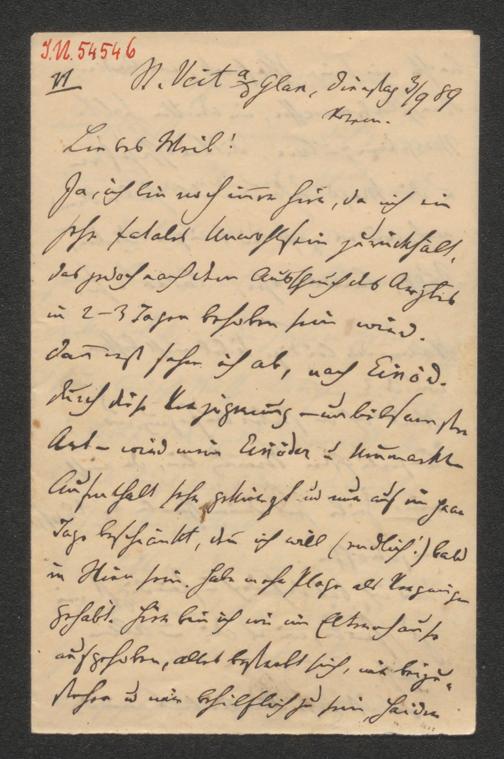 I.N. 54546
VI
St. Veit a/d Glan, Dienstag 3/9 89
Liebes Weib!
Ja, ich bin noch immer hier, da ich ein
sehr fatales Unwohlsein zurückhält,
das jedoch nach dem Ausspruch des Arztes
in 2–3 Tagen behoben sein wird.
Dann erst fahre ich ab, nach Einöd.
Durch diese Verzögerung – unliebsamster
Art – wird mein Einöder u Neumarkter
Aufenthalt sehr gekürzt u nur auf ein paar
Tage beschränkt, denn ich will (endlich!) bald
in Wien sein. Habe mehr Plage als Vergnügen
gehabt. Hier bin ich wie im Elternhause
aufgehoben, alles bestrebt sich, mir beizu-
stehen u mir behilflich zu sein,